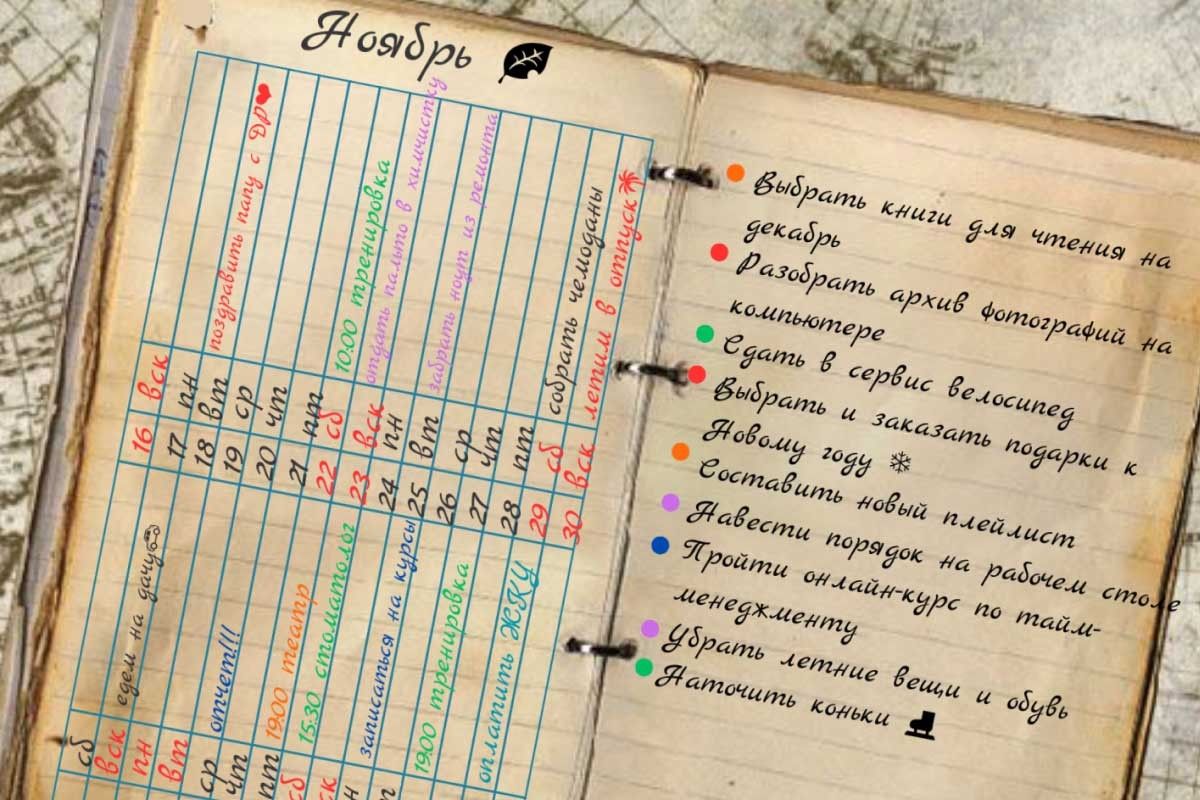 Ноябрь
сб 16 вск
вск едем на дачу 17 пн
пн 18 вт поздравить папу с ДР
вт 19 ср
ср отчет!!! 20 чт
чт 21 пт
пт 19:00 театр 22 сб 10:00 тренировка
сб 15:30 стоматолог 23 вск отдать пальто в химчистку
24 пн
записаться на курсы 25 вт забрать ноут из ремонта
26 ср
19:00 тренировка 27 чт
28 пт
оплатить ЖКУ 29 сб собрать чемоданы
30 вск летим в отпуск
Выбрать книги для чтения на
декабрь
Разобрать архив фотографий на
компьютере
Сдать в сервис велосипед
Выбрать и заказать подарки к
Новому году
Составить новый плейлист
Навести порядок на рабочем столе
Пройти онлайн-курс по тайм-
менеджменту
Убрать летние вещи и обувь
Наточить коньки